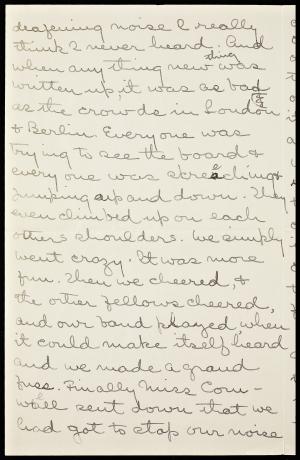 deafening noise I really
think I never heard. And
thing
when any thing new was
written up, it was as bad
as the crowds in London
& Berlin. Every one was
trying to see the board &
every one was streaching &
jumping up and down. They
even climbed up on each
others shoulders. We simply
went crazy. It was more
fun. Then we cheered, &
the other fellows cheered,
and our band played, when
it could make itself heard
and we made a grand
fuss. Finally Miss Corn-
well sent down that we
had got to stop our noise